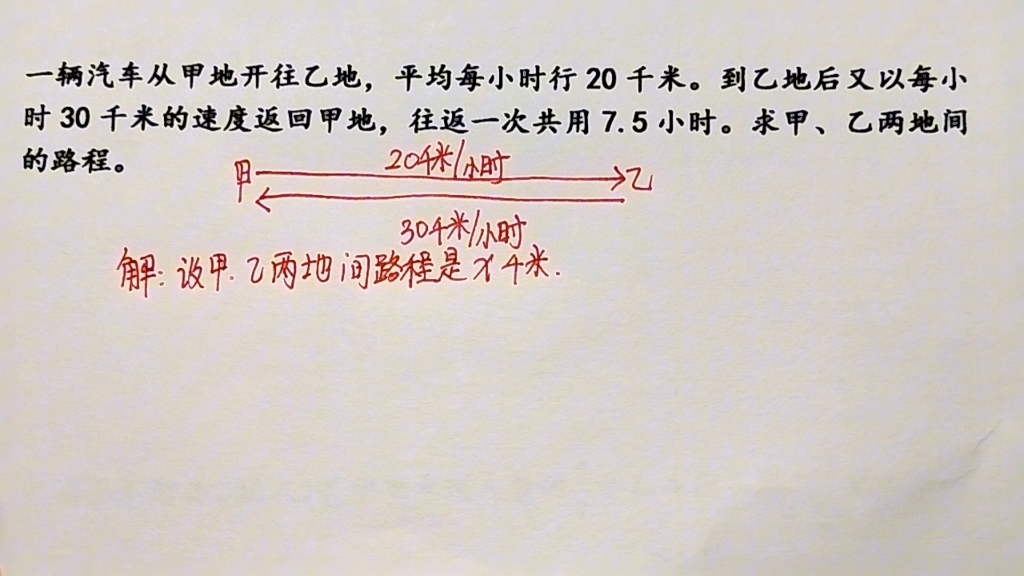 一辆汽车从甲地开往乙地，平均每小时行 20 千米。到乙地后又以每小
时 30 千米的速度返回甲地，往返一次共用 7.5 小时。求甲、乙两地间
的路程。
20千米/小时
甲 乙
30千米/小时
解：设甲.乙两地间路程是x千米.